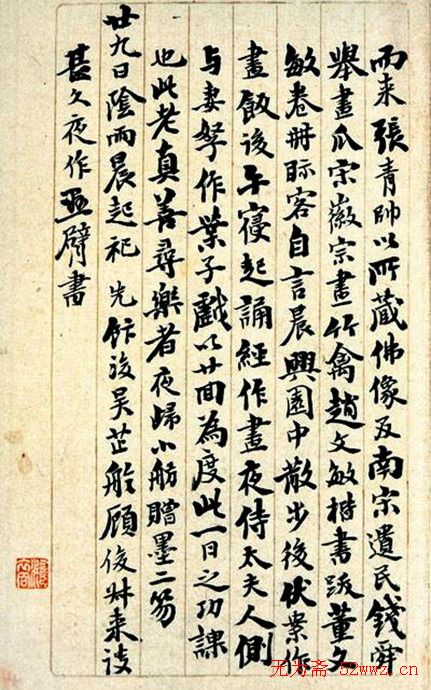 而来張青帥以所藏佛像及南宋遺民錢舜
舉畫瓜宋徽宗畫竹禽趙文敏楷書跋董文
敏卷冊眎客自言晨興園中散步後伏案作
畫飯後午寢起誦經作畫夜侍太夫人側
与妻孥作葉子戲以廿回為度此一日之功課
也此老真善尋樂者夜歸小舫贈墨二笏
廿九日陰雨晨起祀先飰後吴芷舲顧俊叔来谈
甚久夜作臂書
无为斋 52wwz.cn